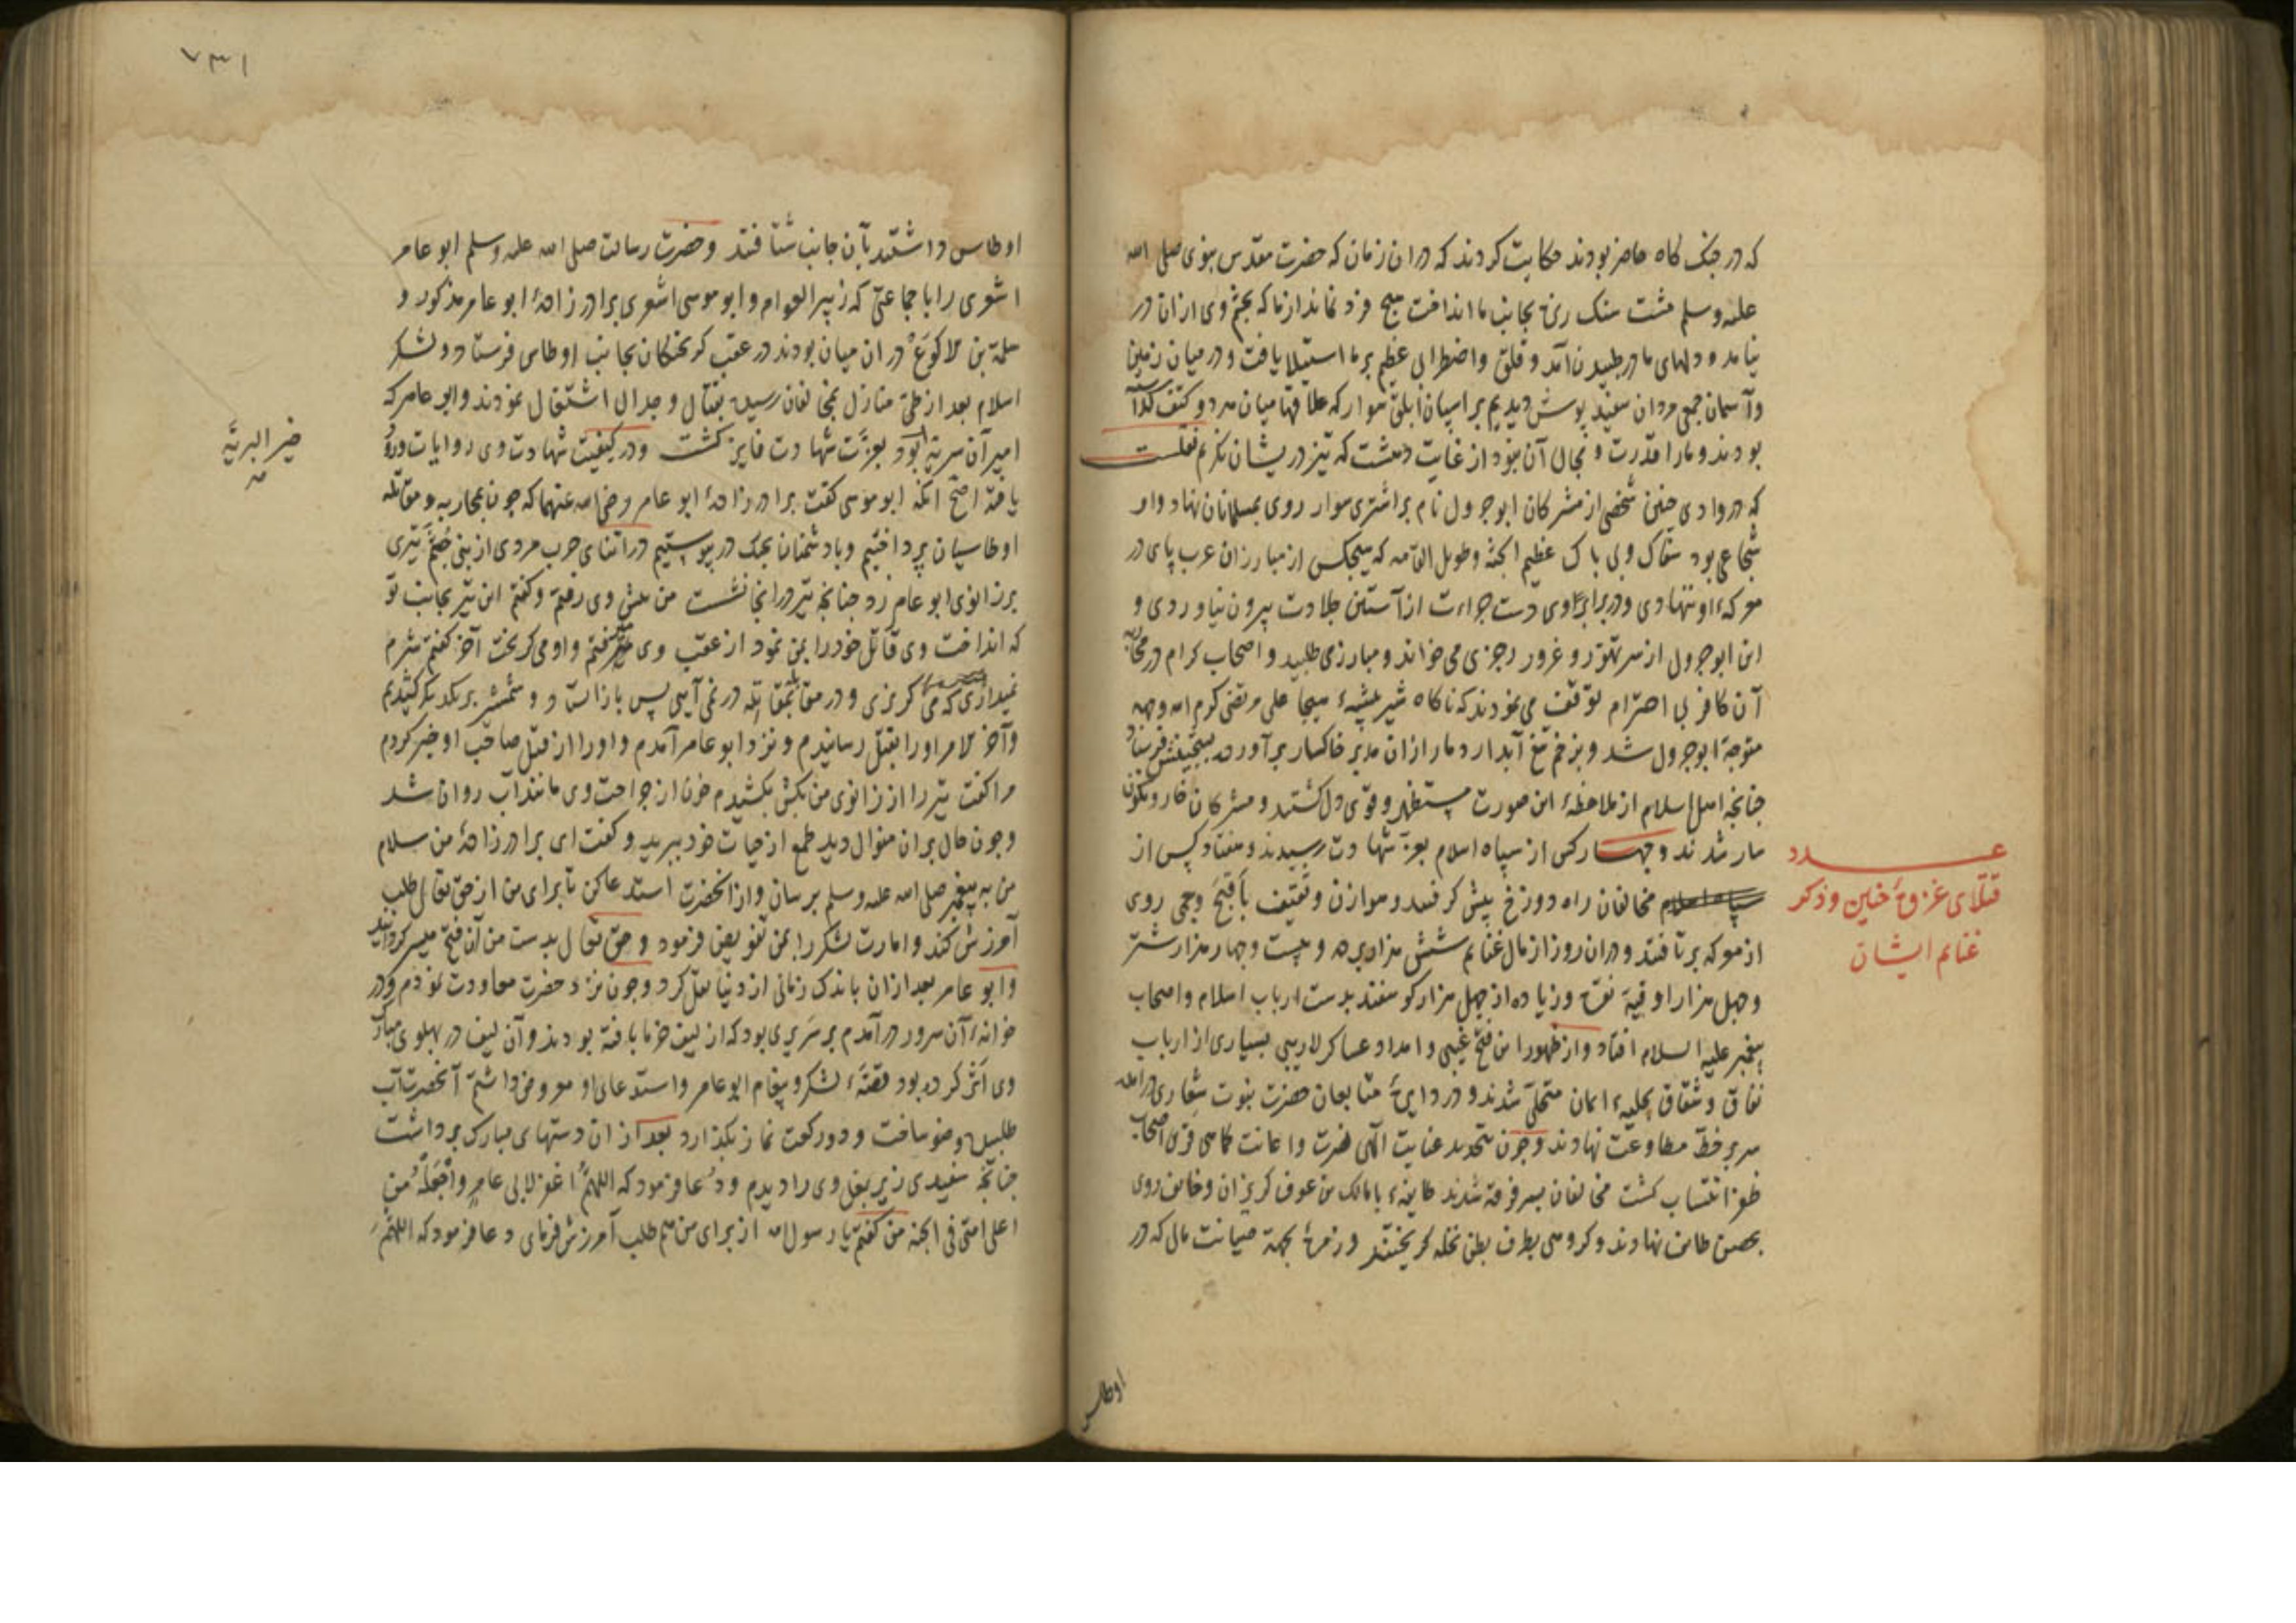 که در جنک کاه حاضر بودند حکایت کردند که دران زمان که حضرت مقدس نبوی صلی الله
علیه وسلم مشت سنک ریزه بجانب ما انداخت هیچ فرد نماند از ما که بچشم وی ازان در
نیامد ودلهای ما در طپیدن آمد و قلق واضطرابی عظیم بر ما استیلا یافت و در میان زمین
وآسمان جمعی مردان سفید پوش دیدیم بر اسپان ابلق سوار که علاقها میان هر دو کتف
بودند وما را قدرت و مجال آن نبود از غایت دهشت که تیز در یشان نکریم نقلست
که در وادی حنین شخصی از مشرکان ابوجرول نام بر اشتری سوار روی بمسلمانان نهاد واو
شجاعی بود سفاک وبی باک عظیم الجثه وطویل القامه که هیچکس از مبارزان عرب پای در
معرکهٔ او ننهادی ودر برابر وی دست جراءت از آستین جلادت بیرون نیاوردی و
این ابوجرول از سر تهور و غرور رجزی می خواند ومبارز می طلبید و اصحاب کرام در محاربهٔ
آن کافر بی احترام توقف می نمودند که ناکاه شیر بیشهٔ هیجا علی مرتضی کرم الله وجهه
متوجه ابوجرول شد و بزخم تیغ آبدار دمار ازان مدبر خاکسار برآورده بسجینش فرستاد
چنانچه اهل اسلام از ملاحظهٔ این صورت مستظهر و قوی دل کشتند و مشرکان خار ونکون
سار شدند و چهار کس از سپاه اسلام بعز شهادت رسیدند و هفتاد کس از
مخالفان راه دوزخ پیش کرفتند و هوازن و ثقیف باقبح وجهی روی
از معرکه برتافتند و دران روز از مال غنایم شش هزار برده و بیست وچهار هزار شتر
وچهل هزار اوقیه نقره وزیاده از چهل هزار کوسفند بدست ارباب اسلام واصحاب
پیغمبر علیه السلام افتاد واز ظهور این فتح غیبی و امداد عساکر لاریبی بسیاری از ارباب
نفاق و شقاق بحلیهٔ ایمان متحلی شدند و در دایرهٔ متابعان حضرت نبوت شعاری درآمده
سر بر خط مطاوعت نهادند وچون بتجدید عنایت الهی نصرت واعانت کاهی قرین اصحاب
ظفر انتساب کشت مخالفان بسه فرقه شدند طایفهٔ با مالک بن عوف کریزان وخایف روی
بحصن طایف نهادند و کروهی بطرف بطن نخله کریختند وزمرهٔ بجهة صیانت مال که در
عدد
قتلای غزوهٔ حنین وذکر
غنایم ایشان
اوطاس
۷۳۱
اوطاس داشتند بآن جانب شتافتند وحضرت رسالت صلی الله علیه وسلم ابو عامر
اشعری را با جماعتی که زبیر العوام و ابو موسی اشعری برادر زادهٔ ابو عامر مذکور و
سلمة بن الاکوع در ان میان بودند در عقب کریختکان بجانب اوطاس فرستاد و لشکر
اسلام بعد از طی منازل بمخالفان رسیده بقتال و جدال اشتغال نمودند وابو عامر که
امیر آن سریه بود بعزت شهادت فایز کشت ودر کیفیت شهادت وی روایات ورود
یافته اصح آنکه ابو موسی کفت برادر زادهٔ ابو عامر رضی الله عنهما که چون بمحاربه ومقاتله
اوطاسیان پرداختیم وبا دشمنان بجنک در پیوستیم در اثنای حرب مردی از بنی جشم تیری
بر زانوی ابو عامر زد چنانچه تیر در انجا نشست من پیش وی رفتم و کفتم این تیر بجانب تو
که انداخت وی قاتل خود را بمن نمود از عقب وی رفتم واو می کریخت آخر کفتم شرم
نمیداری که می کریزی و در مقاتله در نمی آیی پس باز استاد و شمشیر بر یکدیکر کشیدیم
وآخر الامر او را بقتل رسانیدم و نزد ابو عامر آمدم واو را از قتل صاحب او خبر کردم
مرا کفت تیر را از زانوی من بکش بکشیدم خون از جراحت وی مانند آب روان شد
وچون حال بران منوال دید طمع از حیات خود ببرید و کفت ای برادر زادهٔ من سلام
من به پیغمبر صلی الله علیه وسلم برسان واز آنحضرت استدعا کن تا برای من از حق تعالی طلب
آمرزش کند وامارت لشکر را بمن تفویض فرمود وحق تعالی بدست من آن فتح میسر کردانید
وابو عامر بعد ازان باندک زمانی از دنیا نقل کرد وچون نزد حضرت معاودت نمودم ودر
خوانهٔ آن سرور درآمدم بر سریری بود که از لیف خرما بافته بودند وآن لیف در پهلوی مبارک
وی اثر کرده بود قصهٔ لشکر وپیغام ابو عامر واستدعای او معروض داشتم آنحضرت آب
طلبیده وضو ساخت و دو رکعت نماز بکذارد بعد ازان دستهای مبارک برداشت
چنانچه سفیدی زیر بغل وی را دیدم ودعا فرمود که اللهم اغفر لابی عامر واجعله من
اعلی امتی فی الجنه من کفتم یا رسول الله از برای من هم طلب آمرزش فرمای دعا فرمود که اللهم
خیر البریة